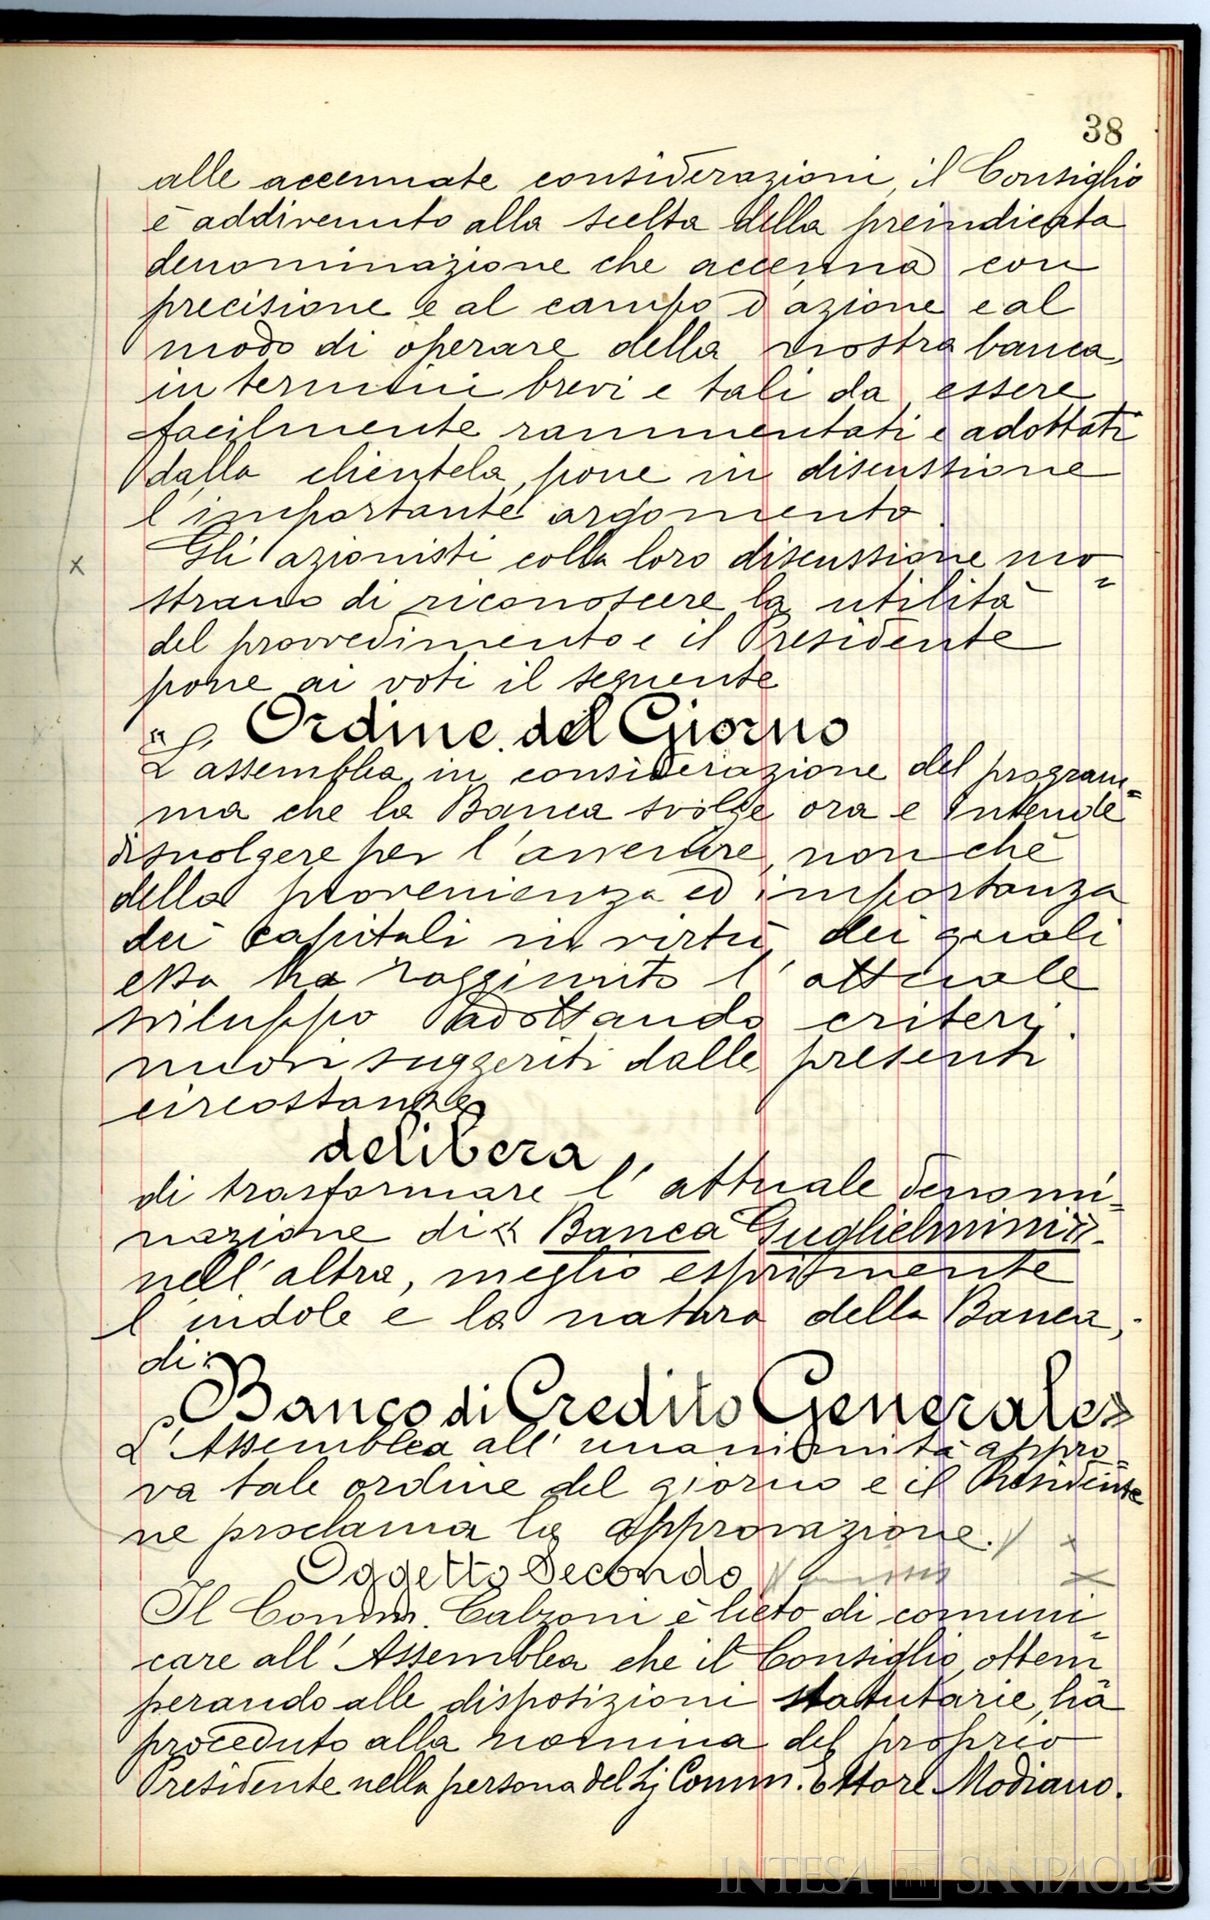 38
alle accennate considerazioni, il Consiglio
è addivenuto alla scelta della preindicata
denominazione che accenna con
precisione e al campo d'azione e al
modo di operare della nostra banca
in termini brevi e tali da essere
facilmente rammentati e adottati
dalla clientela, pone in discussione
l'importante argomento.
Gli azionisti colla loro discussione mo=
strano di riconoscere la utilità
del provvedimento e il Presidente
pone ai voti il seguente
" Ordine del Giorno
L'assemblea, in considerazione del program=
ma che la Banca svolge ora e intende
di svolgere per l'avvenire, nonchè
della provenienza ed importanza
dei capitali in virtù dei quali
essa ha raggiunto l'attuale
sviluppo adottando criteri
nuovi suggeriti dalle presenti
circostanze
delibera
di trasformare l'attuale denomi=
nazione di « Banca Guglielmini »
nell'altra, meglio esprimente
l'indole e la natura della Banca,
di:
"Banco di Credito Generale»
L'Assemblea all'unanimità appro=
va tale ordine del giorno e il Presidente
ne proclama la approvazione.
Oggetto Secondo
Il Comm. Calzoni è lieto di comuni=
care all'Assemblea che il Consiglio, ottem
perando alle disposizioni statutarie, ha
proceduto alla nomina del proprio
Presidente nella persona del Sj Comm. Ettore Modiano.
INTESA SANPAOLO